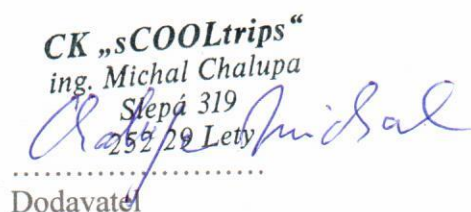 CK „sCOOLtrips“
ing. Michal Chalupa
Slepá 319
252 29 Lety
Chalupa Michal
Dodavatel